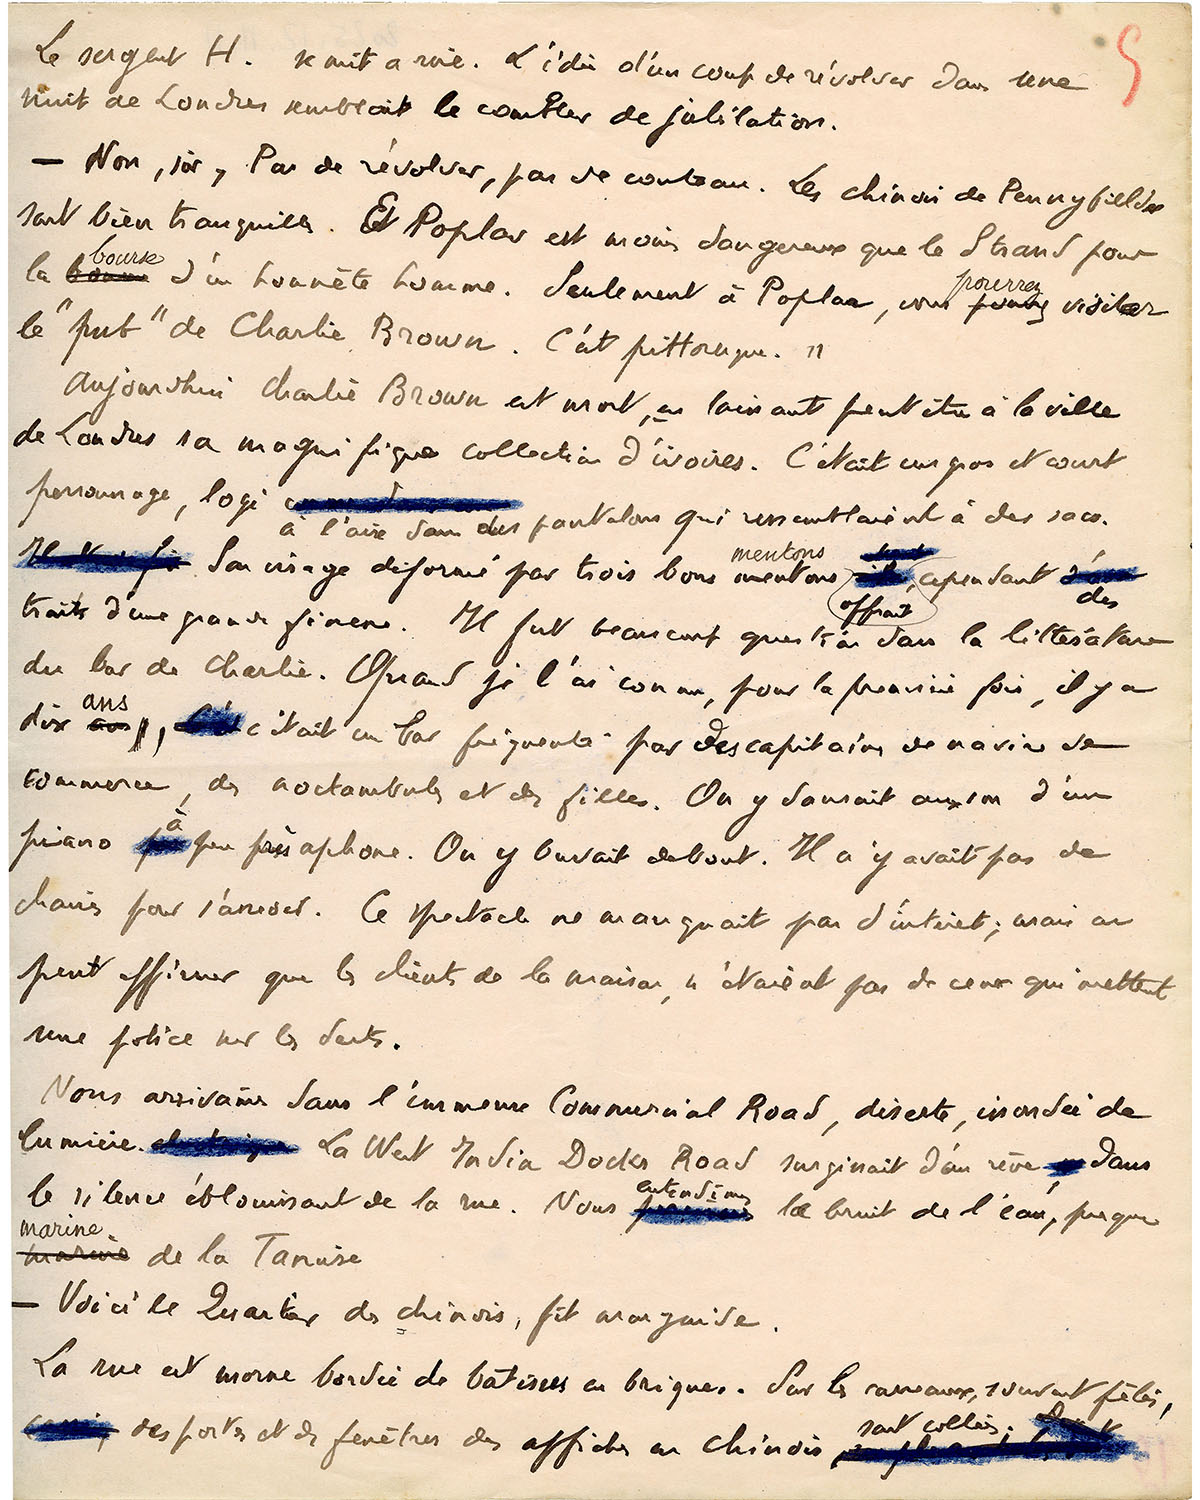 5
Le sergent H. se mit a rire. L'idée d'un coup de révolver dans une
nuit de Londres semblait le combler de jubilation.
— Non, sir, Pas de révolver, pas de couteau. Les chinois de Pennyfields
sont bien tranquilles. Et Poplar est moins dangereux que le Strand pour
la bourse d'un honnête homme. Seulement à Poplar, vous pourrez visiter
le "pub" de Charlie Brown. C'est pittoresque. "
Aujourd'hui Charlie Brown est mort, en laissant peut être à la ville
de Londres sa magnifique collection d'ivoires. C'était un gros et court
personnage, logé
à l'aise dans des pantalons qui ressemblaient à des sacs.
Son visage déformé par trois bons mentons mentons offrait, cependant des
traits d'une grande finesse. Il fut beaucoup question dans la littérature
du bar de Charlie. Quand je l'ai connu, pour la première fois, il y a
dix ans, c'était un bar fréquenté par des capitaines de marine de
commerce, des noctambules et des filles. On y dansait au son d'un
piano à . On y buvait debout. Il n'y avait pas de
chaises pour s'asseoir. Ce spectacle ne manquait pas d'intérêt; mais on
peut affirmer que les clients de la maison, n'étaient pas de ceux qui mettent
une police sur les dents.
Nous arrivâmes dans l'immense Commercial Road, déserte, inondée de
lumière. La West India Docks Road surgissait d'un rêve, dans
le silence éblouissant de la rue. Nous entendîmes le bruit de l'eau, presque
marine de la Tamise
— Voici le Quartier des chinois, fit mon guide.
La rue est morne bordée de bâtisses en briques. Sur les carreaux, souvent fêlés,
des portes et de fenêtres des affiches en chinois, sont collées.